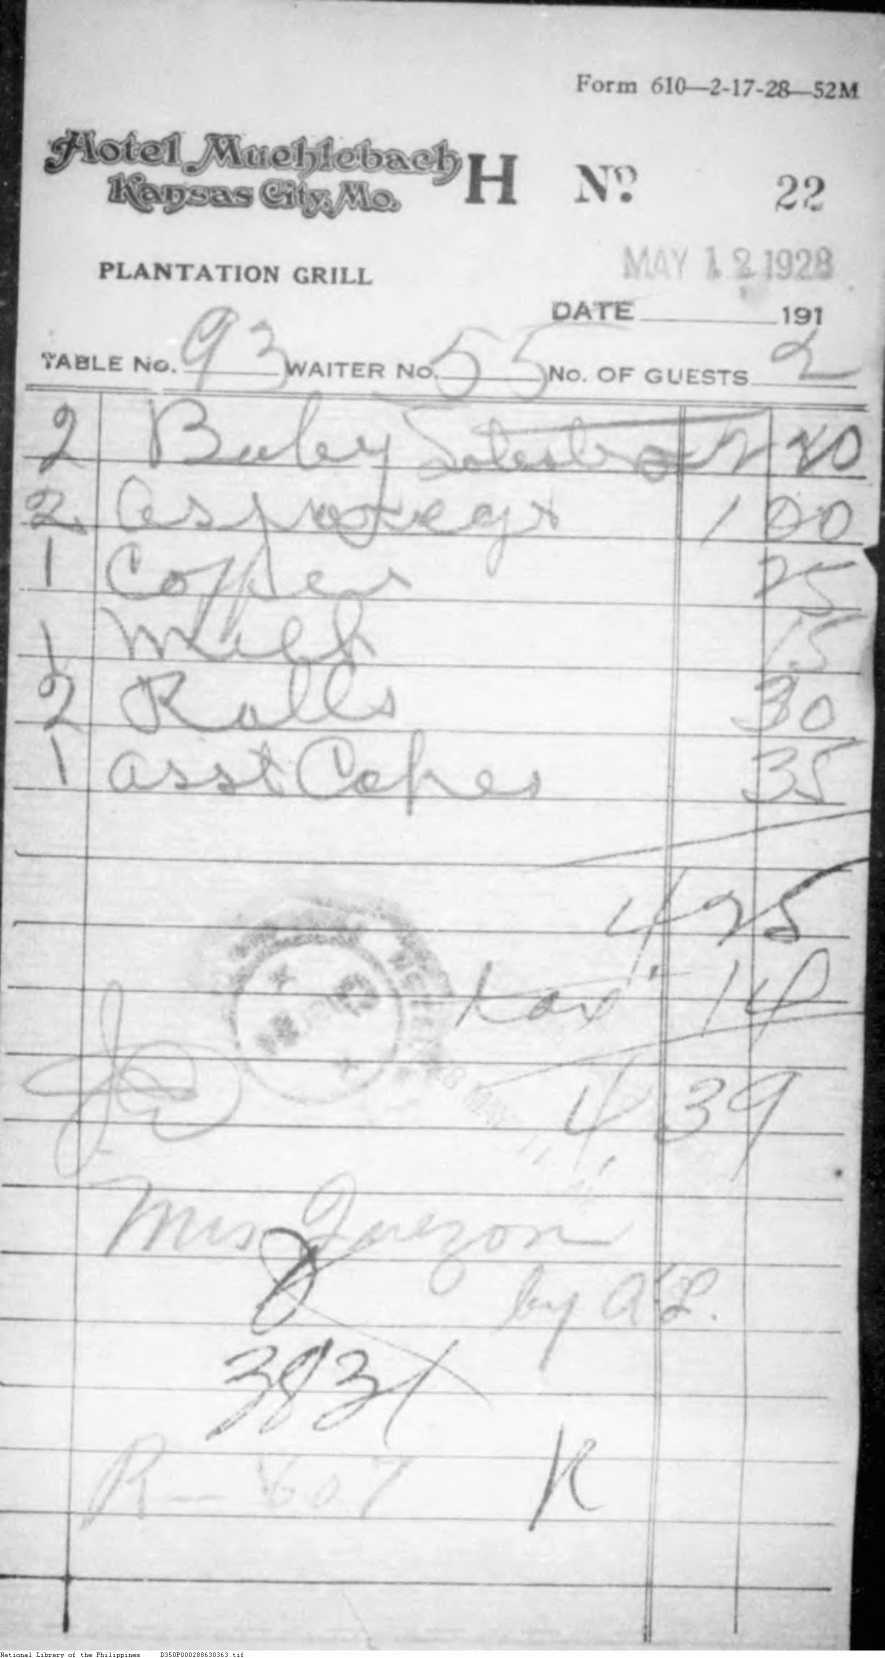 Form 610—2-17-28—52M
Hotel Muehlebach
Kansas City, Mo.
H No. 22
PLANTATION GRILL
MAY 12 1928
DATE 191
TABLE No. 93 WAITER No. 55 No. OF GUESTS 2
2 Baby 2 20
2 Asparagus 1 00
1 Coffee 25
1 Milk 15
2 Rolls 30
1 Asst Cakes 35
4 25
tax 14
4 39
Mrs Quezon
by A.L.
383
R—607
K
National Library of the Philippines D350P000288630363.tif